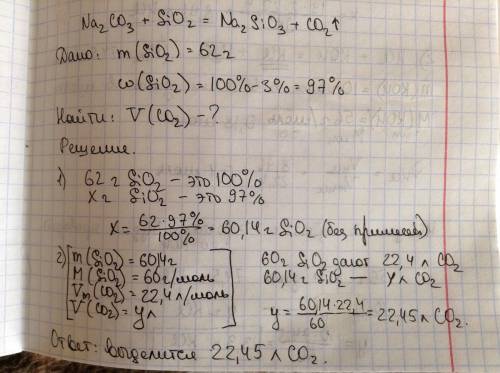 Na₂CO₃ + SiO₂ = Na₂SiO₃ + CO₂↑
Дано: m(SiO₂) = 62 г
ω(SiO₂) = 100% - 3% = 97%
Найти: V(CO₂) - ?
Решение.
1) 62 г SiO₂ – это 100%
x г SiO₂ – это 97%
x = 62 · 97% / 100% = 60,14 г SiO₂ (без примесей)
2) m(SiO₂) = 60,14 г
M(SiO₂) = 60 г/моль
Vm(CO₂) = 22,4 л/моль
V(CO₂) = y л
60 г SiO₂ дают 22,4 л CO₂
60,14 г SiO₂ — y л CO₂
y = 60,14 · 22,4 / 60 = 22,45 л CO₂.
Ответ: выделится 22,45 л CO₂.